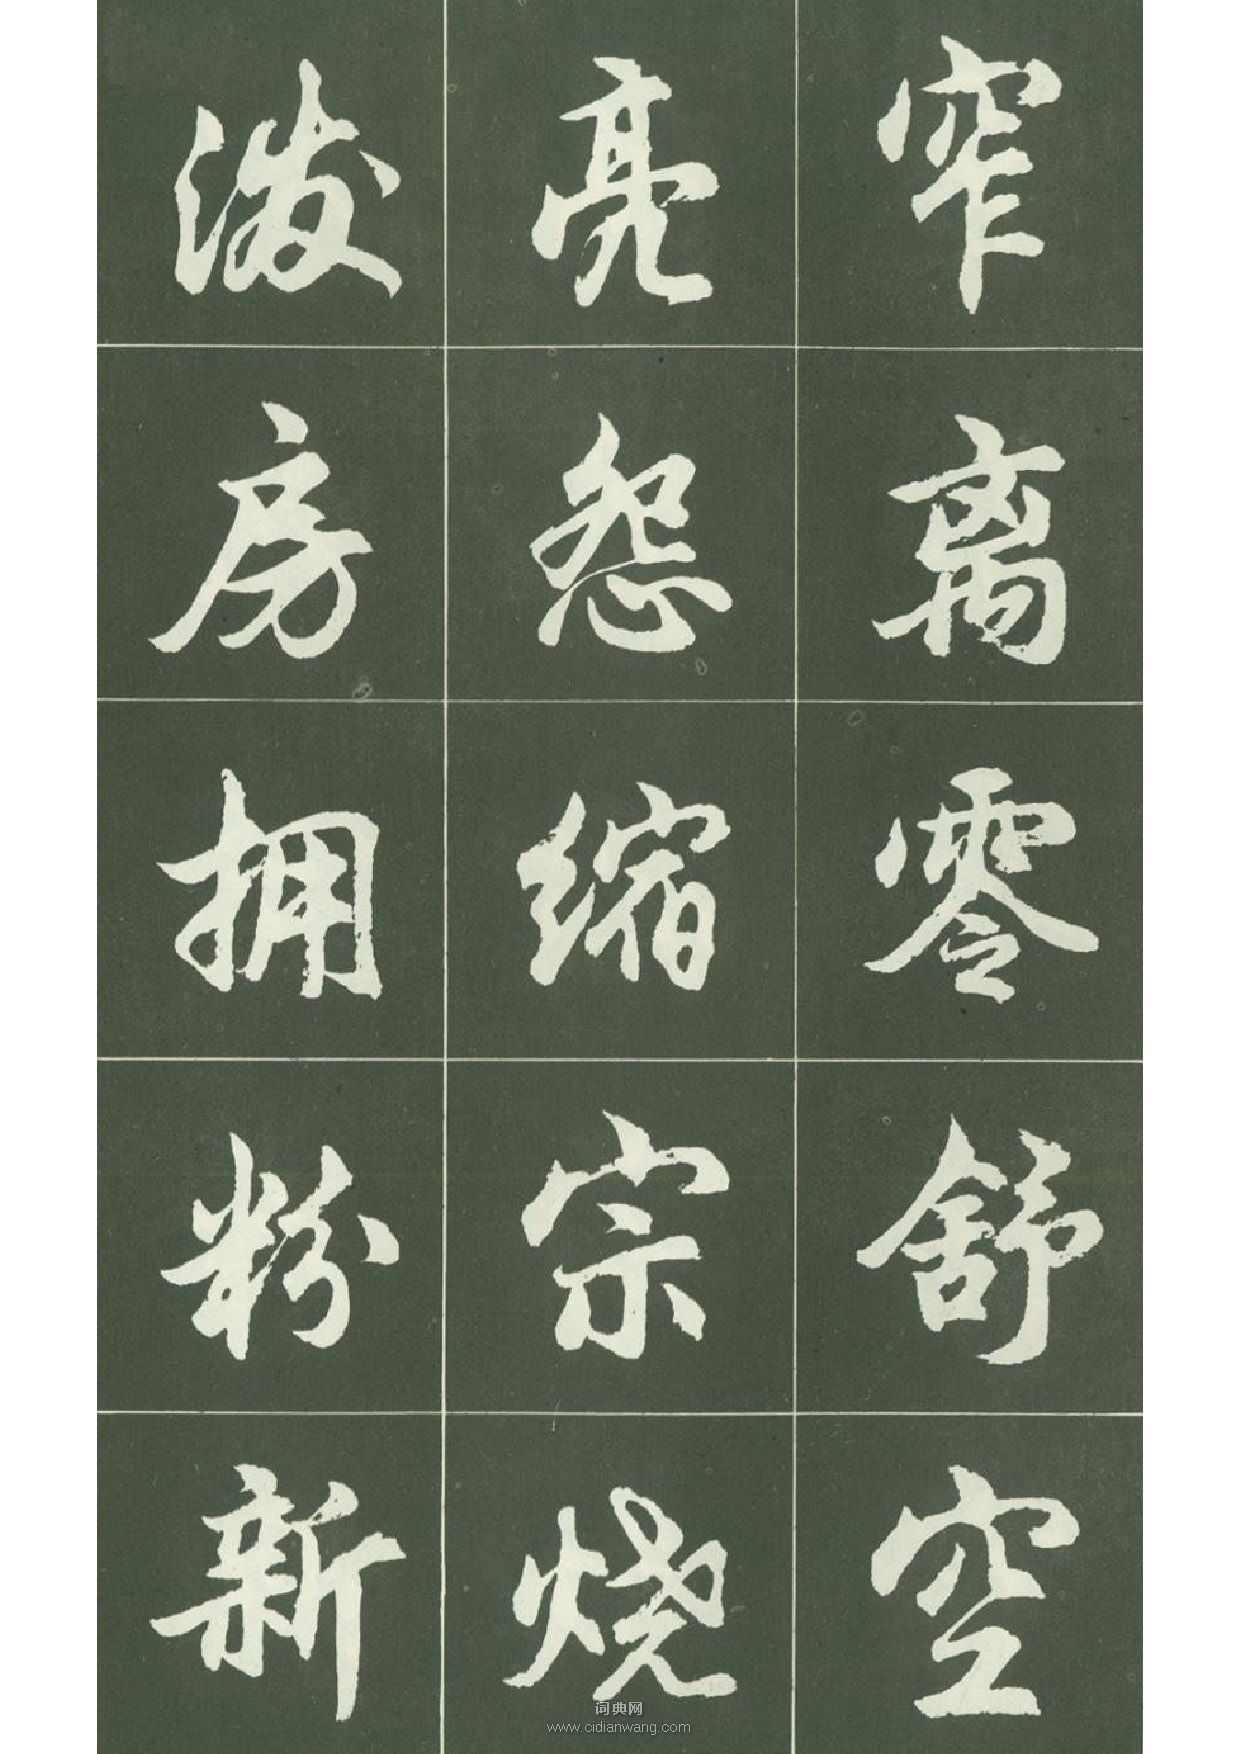 窄离零舒空
亮怨缩宗烧
泼房拥粉新
词典网
www.cidianwang.com